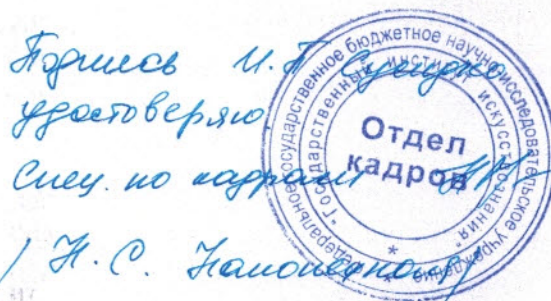 Подпись И.П.
удостоверяю
Спец. по кадрам
/ Н. С.
Федеральное государственное бюджетное научно-исследовательское учреждение
"Государственный институт искусствознания"
Отдел
кадров